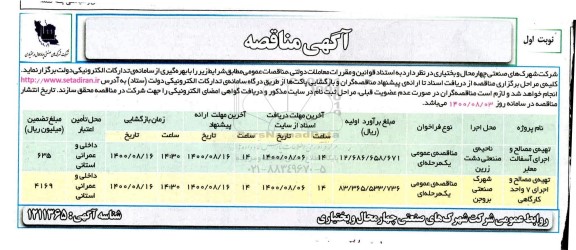 نوبت اول
آگهی مناقصه
شرکت شهرک‌های صنعتی چهارمحال و بختیاری در نظر دارد به استناد قوانین و مقررات معاملات دولتی، مناقصات عمومی مطابق شرایط زیر را با بهره‌گیری از سامانه‌ی تدارکات الکترونیکی دولت برگزار نماید.
کلیه‌ی مراحل برگزاری مناقصه از دریافت اسناد تا ارائه‌ی پیشنهاد مناقصه‌گران و بازگشایی پاکت‌ها از طریق درگاه سامانه‌ی تدارکات الکترونیکی دولت (ستاد) به آدرس http://www.setadiran.ir
انجام خواهد شد و لازم است مناقصه‌گران در صورت عدم عضویت قبلی، مراحل ثبت نام در سایت مذکور و دریافت گواهی امضای الکترونیکی را جهت شرکت در مناقصه محقق سازند. تاریخ انتشار
مناقصه در سامانه روز ۱۴۰۰/۰۸/۰۳ می‌باشد.
نام پروژه | محل اجرا | نوع فراخوان | مبلغ برآورد اولیه (ریال) | آخرین مهلت دریافت اسناد از سایت | آخرین مهلت ارائه پیشنهاد | زمان بازگشایی | محل تأمین اعتبار | مبلغ تضمین (میلیون ریال)
ساعت | تاریخ | ساعت | تاریخ | ساعت | تاریخ
تهیه‌ی مصالح و اجرای آسفالت معابر | ناحیه‌ی صنعتی دشت زرین | مناقصه‌ی عمومی یک‌مرحله‌ای | ۱۲/۶۸۶/۶۵۸/۶۷۱ | ۱۴ | ۱۴۰۰/۰۸/۰۶ | ۱۴ | ۱۴۰۰/۰۸/۱۶ | ۱۴:۳۰ | ۱۴۰۰/۰۸/۱۶ | داخلی و عمرانی استانی | ۶۳۵
تهیه‌ی مصالح و اجرای ۷ واحد کارگاهی | شهرک صنعتی بروجن | مناقصه‌ی عمومی یک‌مرحله‌ای | ۸۳/۳۶۵/۵۳۳/۷۳۶ | ۱۴ | ۱۴۰۰/۰۸/۰۶ | ۱۴ | ۱۴۰۰/۰۸/۱۶ | ۱۴:۳۰ | ۱۴۰۰/۰۸/۱۶ | داخلی و عمرانی استانی | ۴۱۶۹
روابط عمومی شرکت شهرک‌های صنعتی چهارمحال و بختیاری
شناسه آگهی: ۱۲۱۱۳۶۵۰